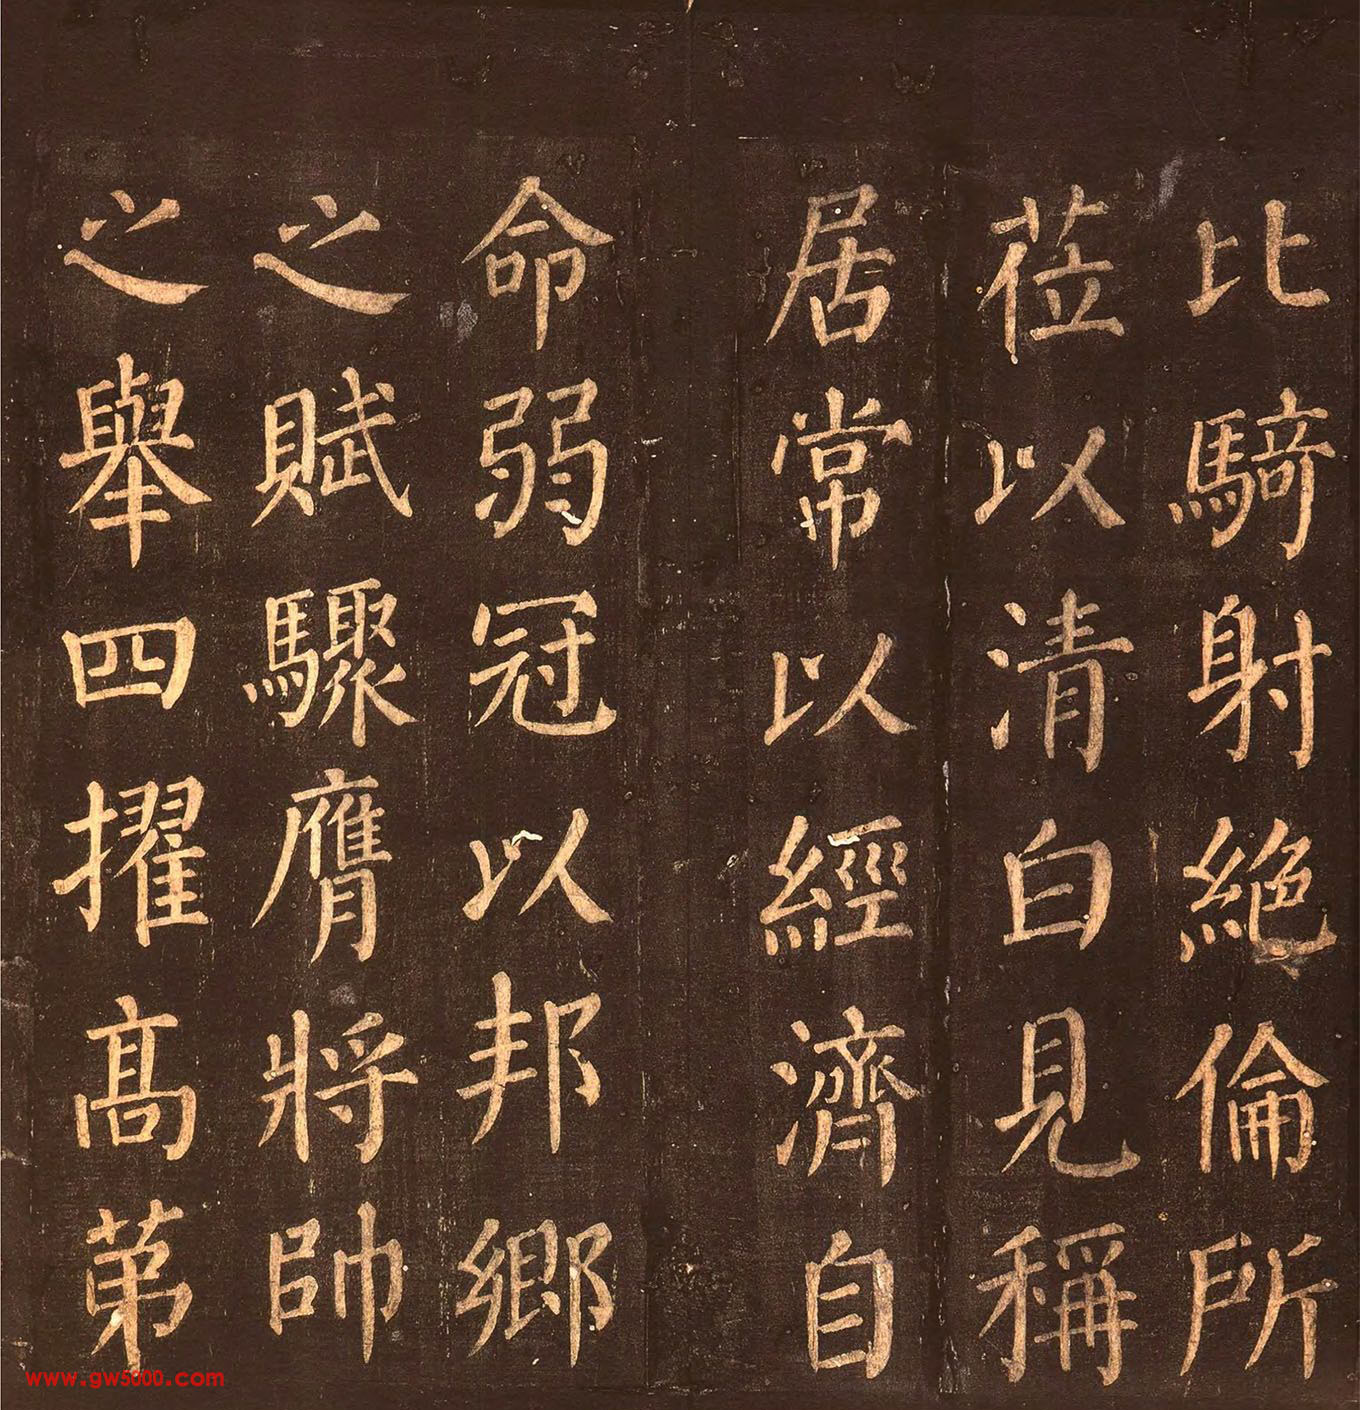 比騎射絕倫所
莅以清白見稱
居常以經濟自
命弱冠以邦鄉
之賦驟膺將帥
之舉四擢高第
www.gw5000.com